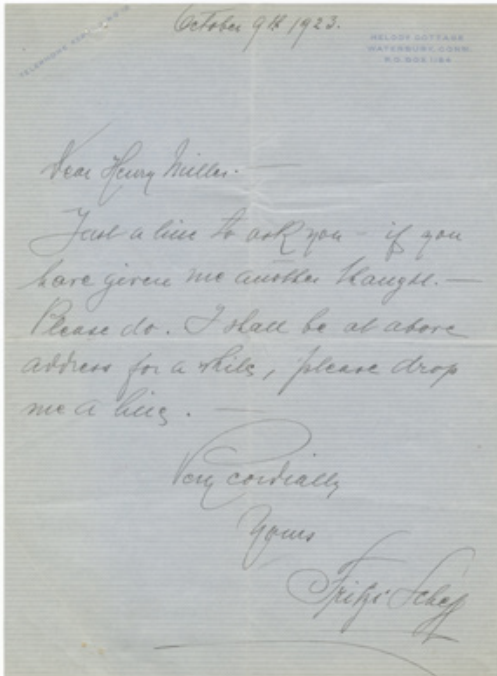 October 9th 1923.
MELODY COTTAGE
WATERBURY, CONN.
P.O. BOX 1184
Dear Henry Miller.—
Just a line to ask you - if you
have given me another thought.—
Please do. I shall be at above
address for a while, please drop
me a line. —
Very cordially
Yours
Fritzi Scheff